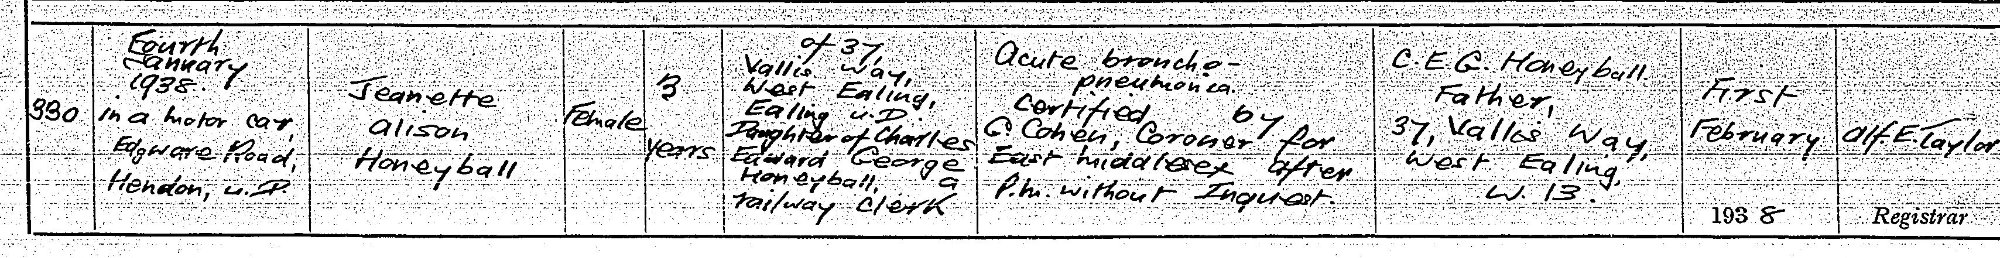 330
Fourth
January
1938.
in a motor car,
Edgware Road,
Hendon, U.D.
Jeanette
Alison
Honeyball
Female
3
years
of 37,
Vallis Way,
West Ealing,
Ealing U.D.
Daughter of Charles
Edward George
Honeyball, a
railway clerk
Acute broncho-
pneumonia.
Certified by
G Cohen, Coroner for
East Middlesex after
P.M. without Inquest.
C.E.G. Honeyball.
Father,
37, Vallis Way,
West Ealing,
W. 13.
First
February
1938
Alf. E. Taylor
Registrar